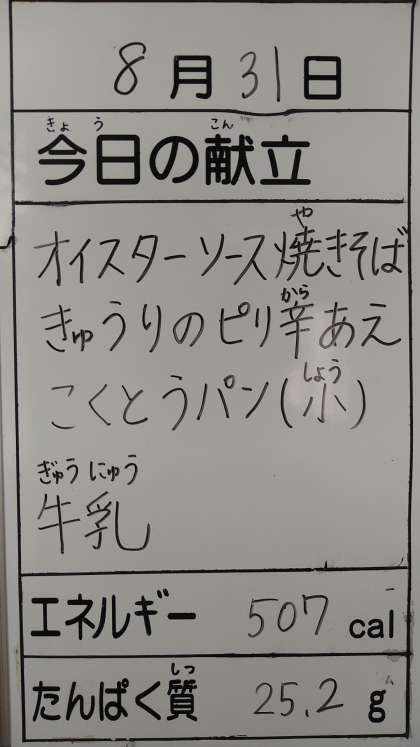 8月31日
きょう こん
今日の献立
や
オイスターソース焼きそば
から
きゅうりのピリ辛あえ
しょう
こくとうパン(小)
ぎゅうにゅう
牛乳
エネルギー 507 cal
しつ
たんぱく質 25.2 g